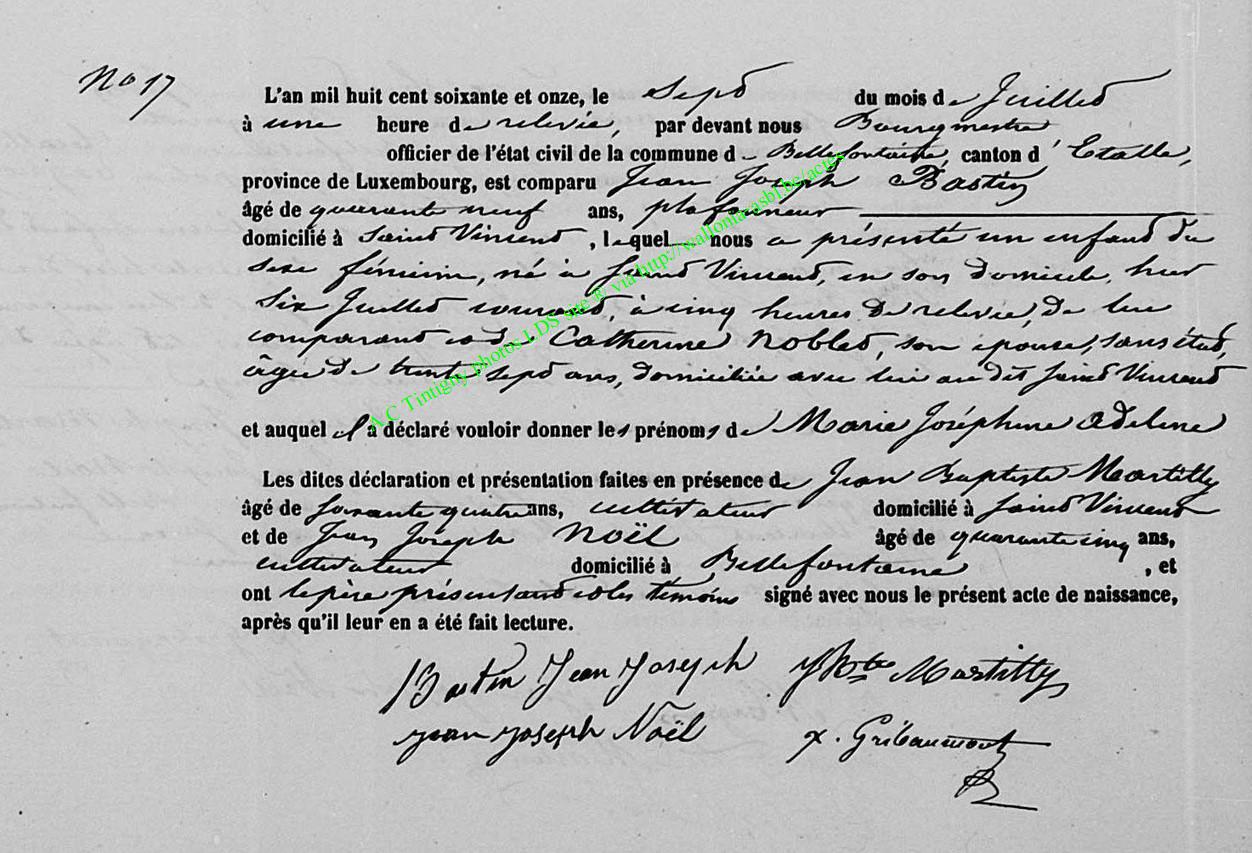 No 17
L'an mil huit cent soixante et onze, le sept du mois de Juillet
à une heure de relevée, par devant nous Bourgmestre
officier de l'état civil de la commune de Bellefontaine, canton d'Etalle,
province de Luxembourg, est comparu Jean Joseph Bastin
âgé de quarante neuf ans, plafonneur
domicilié à Saint Vincent, lequel nous a présenté un enfant du
sexe féminin, né à Saint Vincent, en son domicile, hier
six Juillet courant, à cinq heures de relevée, de lui
comparant et de Catherine Noblet, son épouse, sans état,
âgée de trente sept ans, domiciliée avec lui au dit Saint Vincent
et auquel il a déclaré vouloir donner les prénoms de Marie Joséphine Adeline
Les dites déclaration et présentation faites en présence de Jean Baptiste Martilly
âgé de soixante quatre ans, cultivateur domicilié à Saint Vincent
et de Jean Joseph Noël âgé de quarante cinq ans,
cultivateur domicilié à Bellefontaine, et
ont le père présentant et les témoins signé avec nous le présent acte de naissance,
après qu'il leur en a été fait lecture.
Bastin Jean Joseph J Bte Martilly
jean joseph Noël x. Gribaumont
A.C Tintigny photos LDS site @ via http://walloniasbl.be/actes